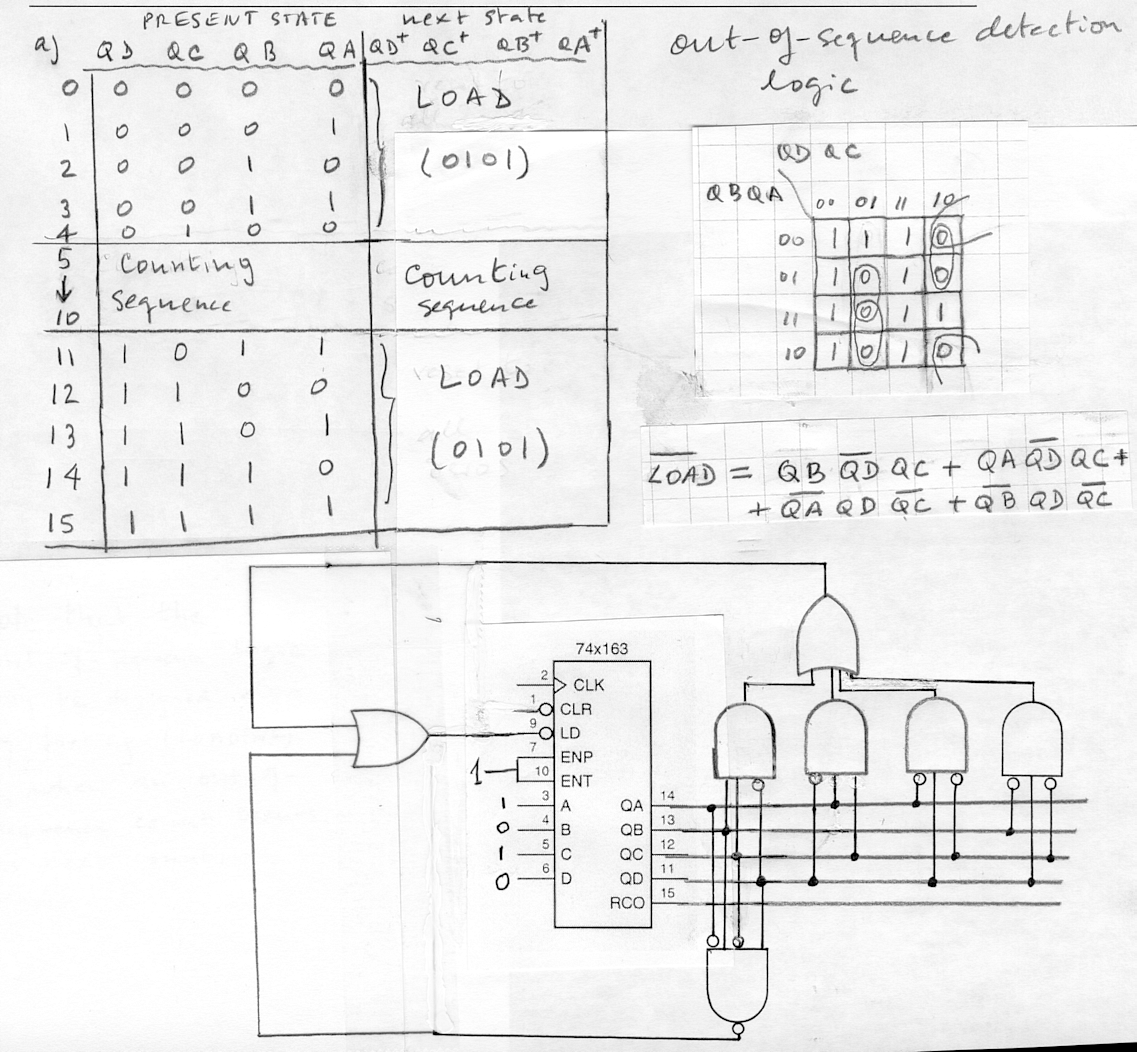 PRESENT STATE next state
a) QD QC QB QA QD⁺ QC⁺ QB⁺ QA⁺
0 0 0 0 0 LOAD
1 0 0 0 1
2 0 0 1 0 (0101)
3 0 0 1 1
4 0 1 0 0
5 Counting Counting
↓ sequence sequence
10
11 1 0 1 1 LOAD
12 1 1 0 0
13 1 1 0 1 (0101)
14 1 1 1 0
15 1 1 1 1
out-of-sequence detection
logic
QD QC
QBQA 00 01 11 10
00 1 1 1 0
01 1 0 1 0
11 1 0 1 1
10 1 0 1 0
L̅O̅A̅D̅ = QB Q̅D̅ QC + QA Q̅D̅ QC +
+ Q̅A̅ QD Q̅C̅ + Q̅B̅ QD Q̅C̅
74x163
2 CLK
1 CLR
9 LD
7 ENP
1
10 ENT
1 3 A QA 14
0 4 B QB 13
1 5 C QC 12
0 6 D QD 11
RCO 15